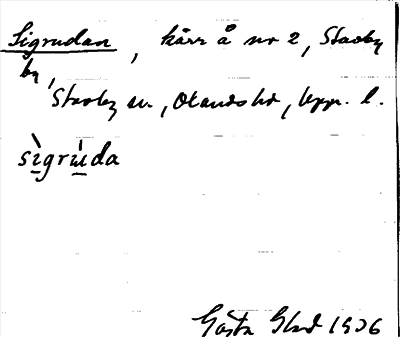 Sigrudan, kärr å nr 2, Stavby
by,
Stavby sn, Olands hd, Upp. l.
sìgrúda
Gösta 1906